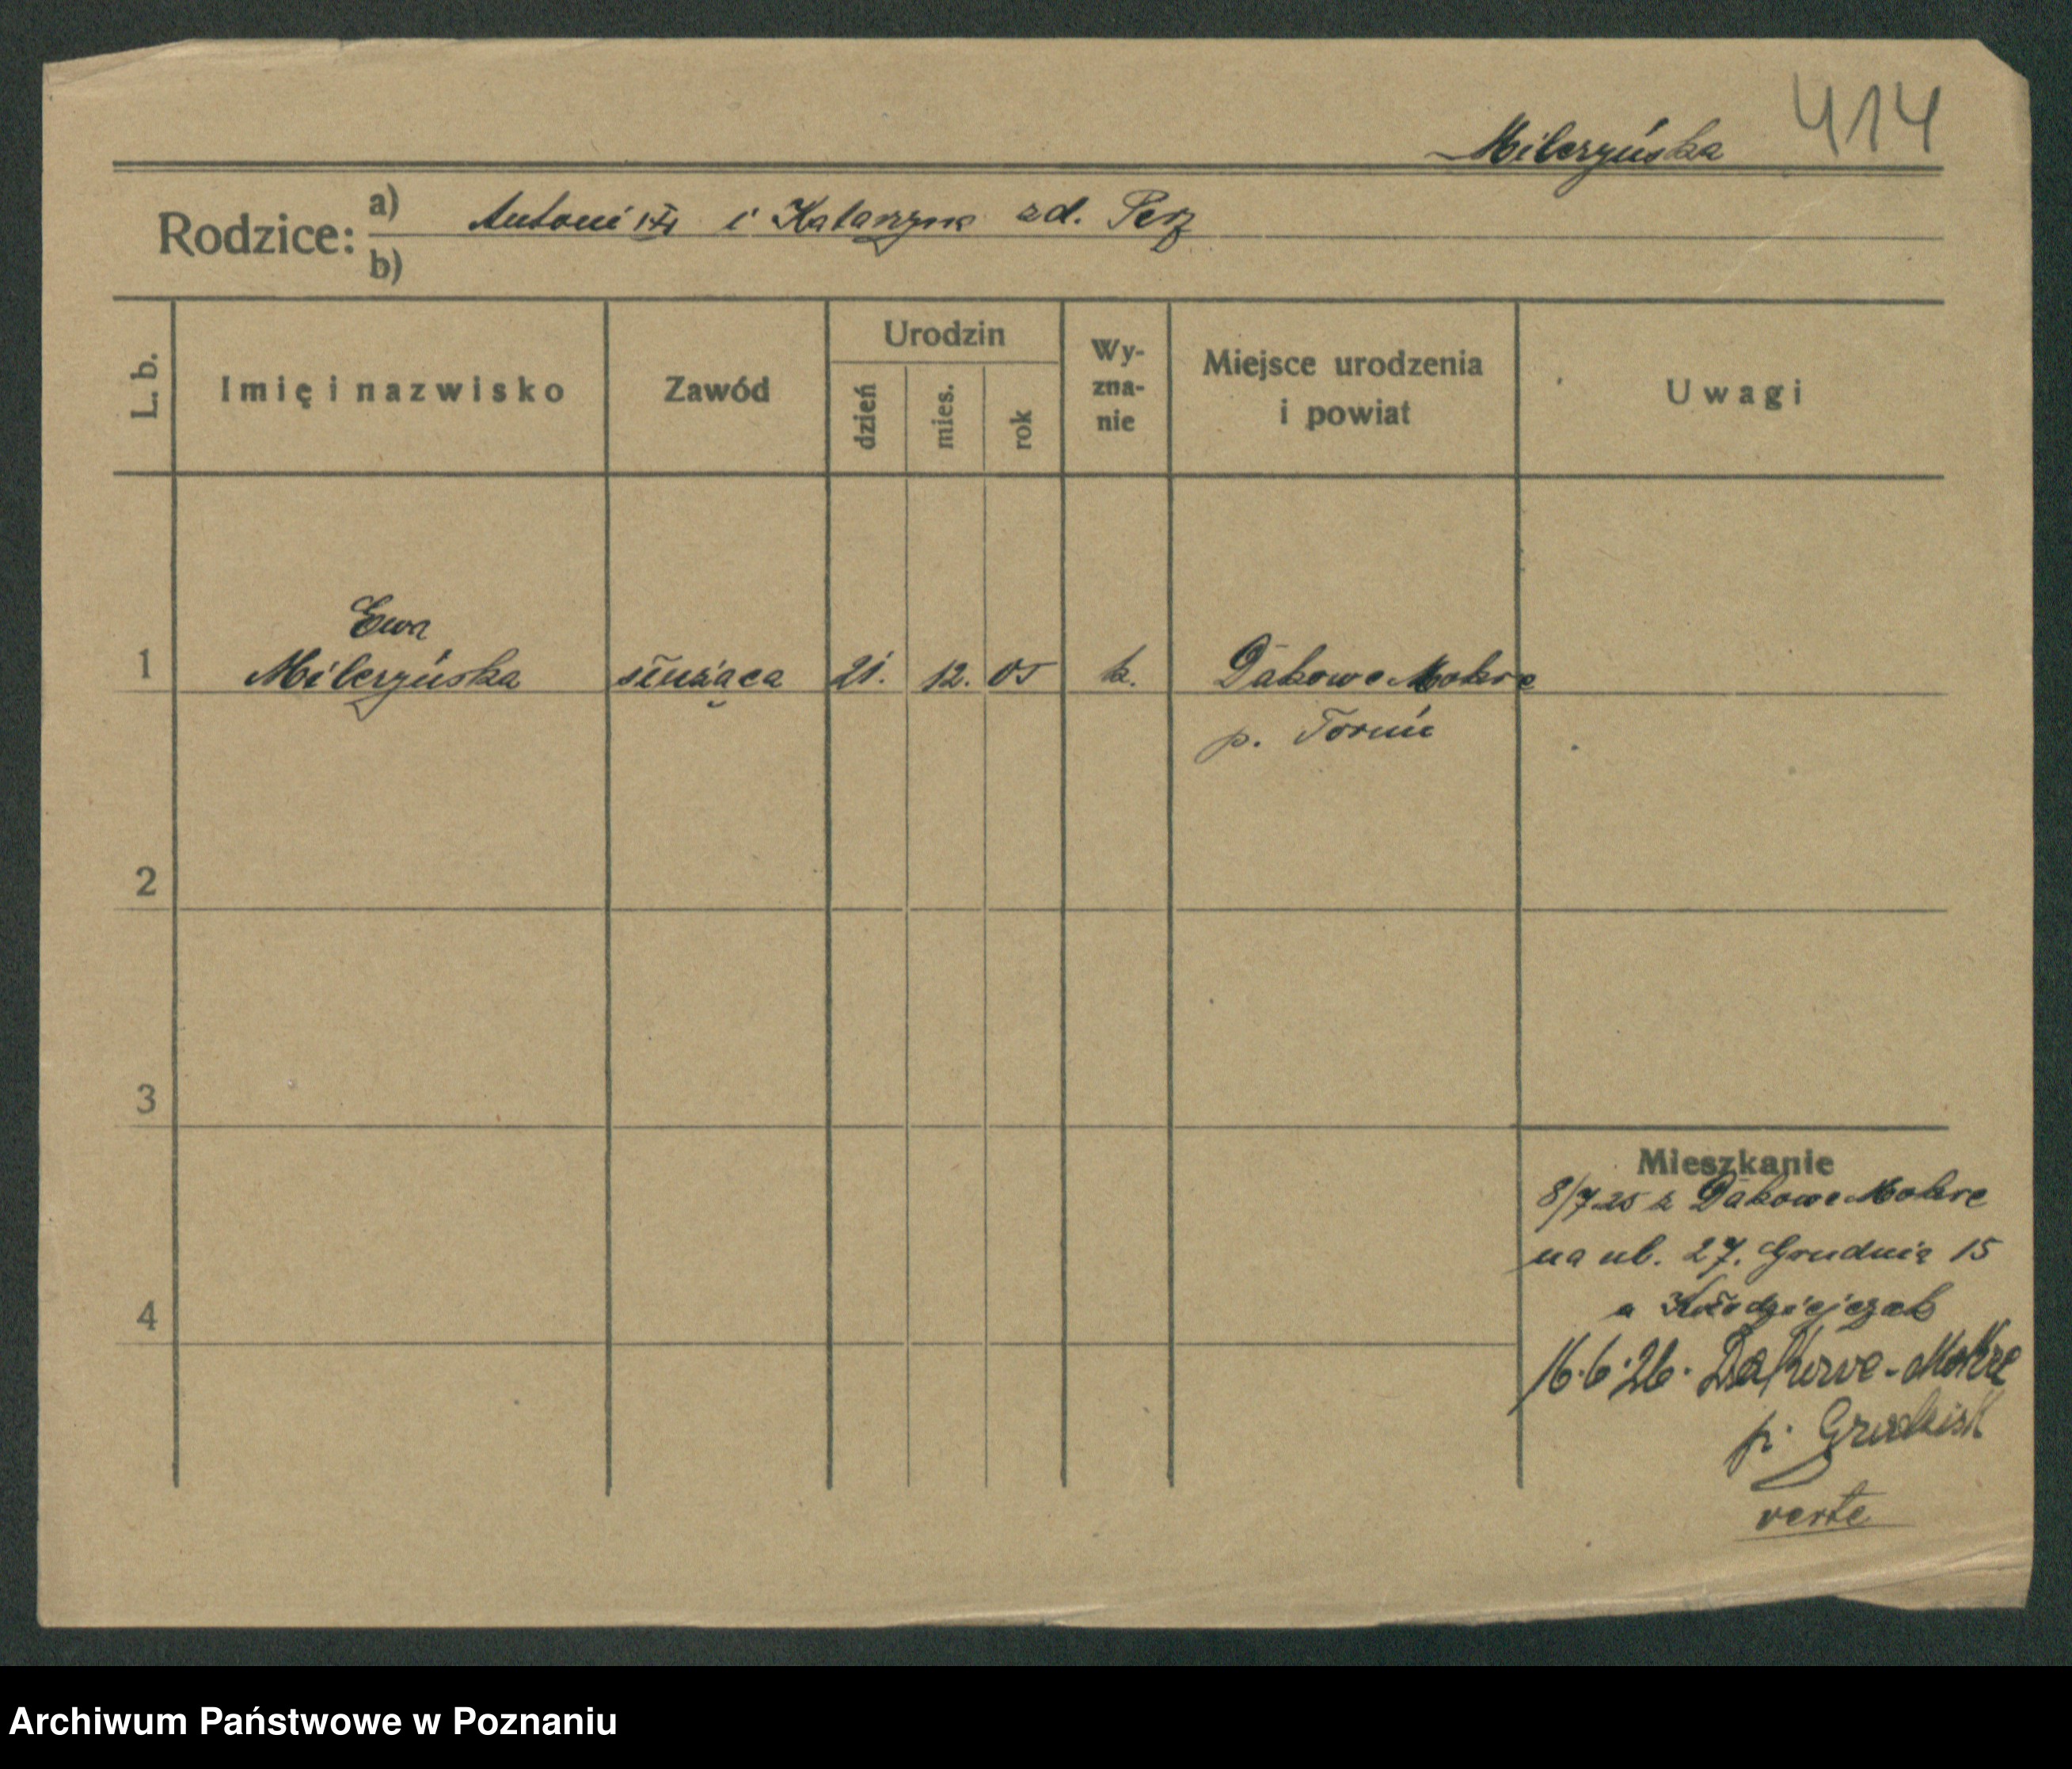 414
Milczyńska
Rodzice: a) Antoni i Katarzyna zd. Perz
b)
L. b. Imię i nazwisko Zawód Urodzin dzień mies. rok Wy-zna-nie Miejsce urodzenia i powiat Uwagi
Ewa
1 Milczyńska służąca 21. 12. 05 k. Dakowe Mokre
p. Toruń
2
3
Mieszkanie
8/7 25 z Dakowe Mokre
na ul. 27. Grudnia 15
4
a Kołodziejczak
16.6.26. Dakowe-Mokre
p. Grodzisk
verte
Archiwum Państwowe w Poznaniu